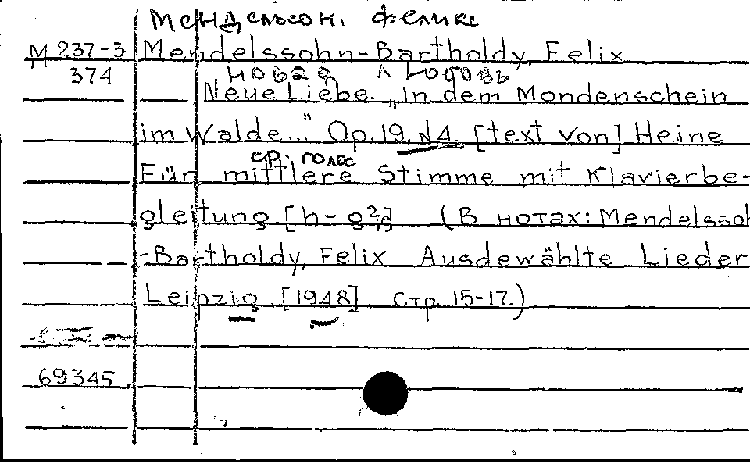 Мендельсон, Феликс
М 237-3 Mendelssohn-Bartholdy, Felix
374 Новая любовь
Neue Liebe „In dem Mondenschein
im Walde..." Op. 19 N4 [text von] Heine
ср. голос
Für mittlere Stimme mit Klavierbe-
gleitung [h-g²] (В нотах: Mendelssoh
-Bartholdy, Felix Ausdewählte Lieder
Leipzig [1948] Стр. 15-17.)
69345